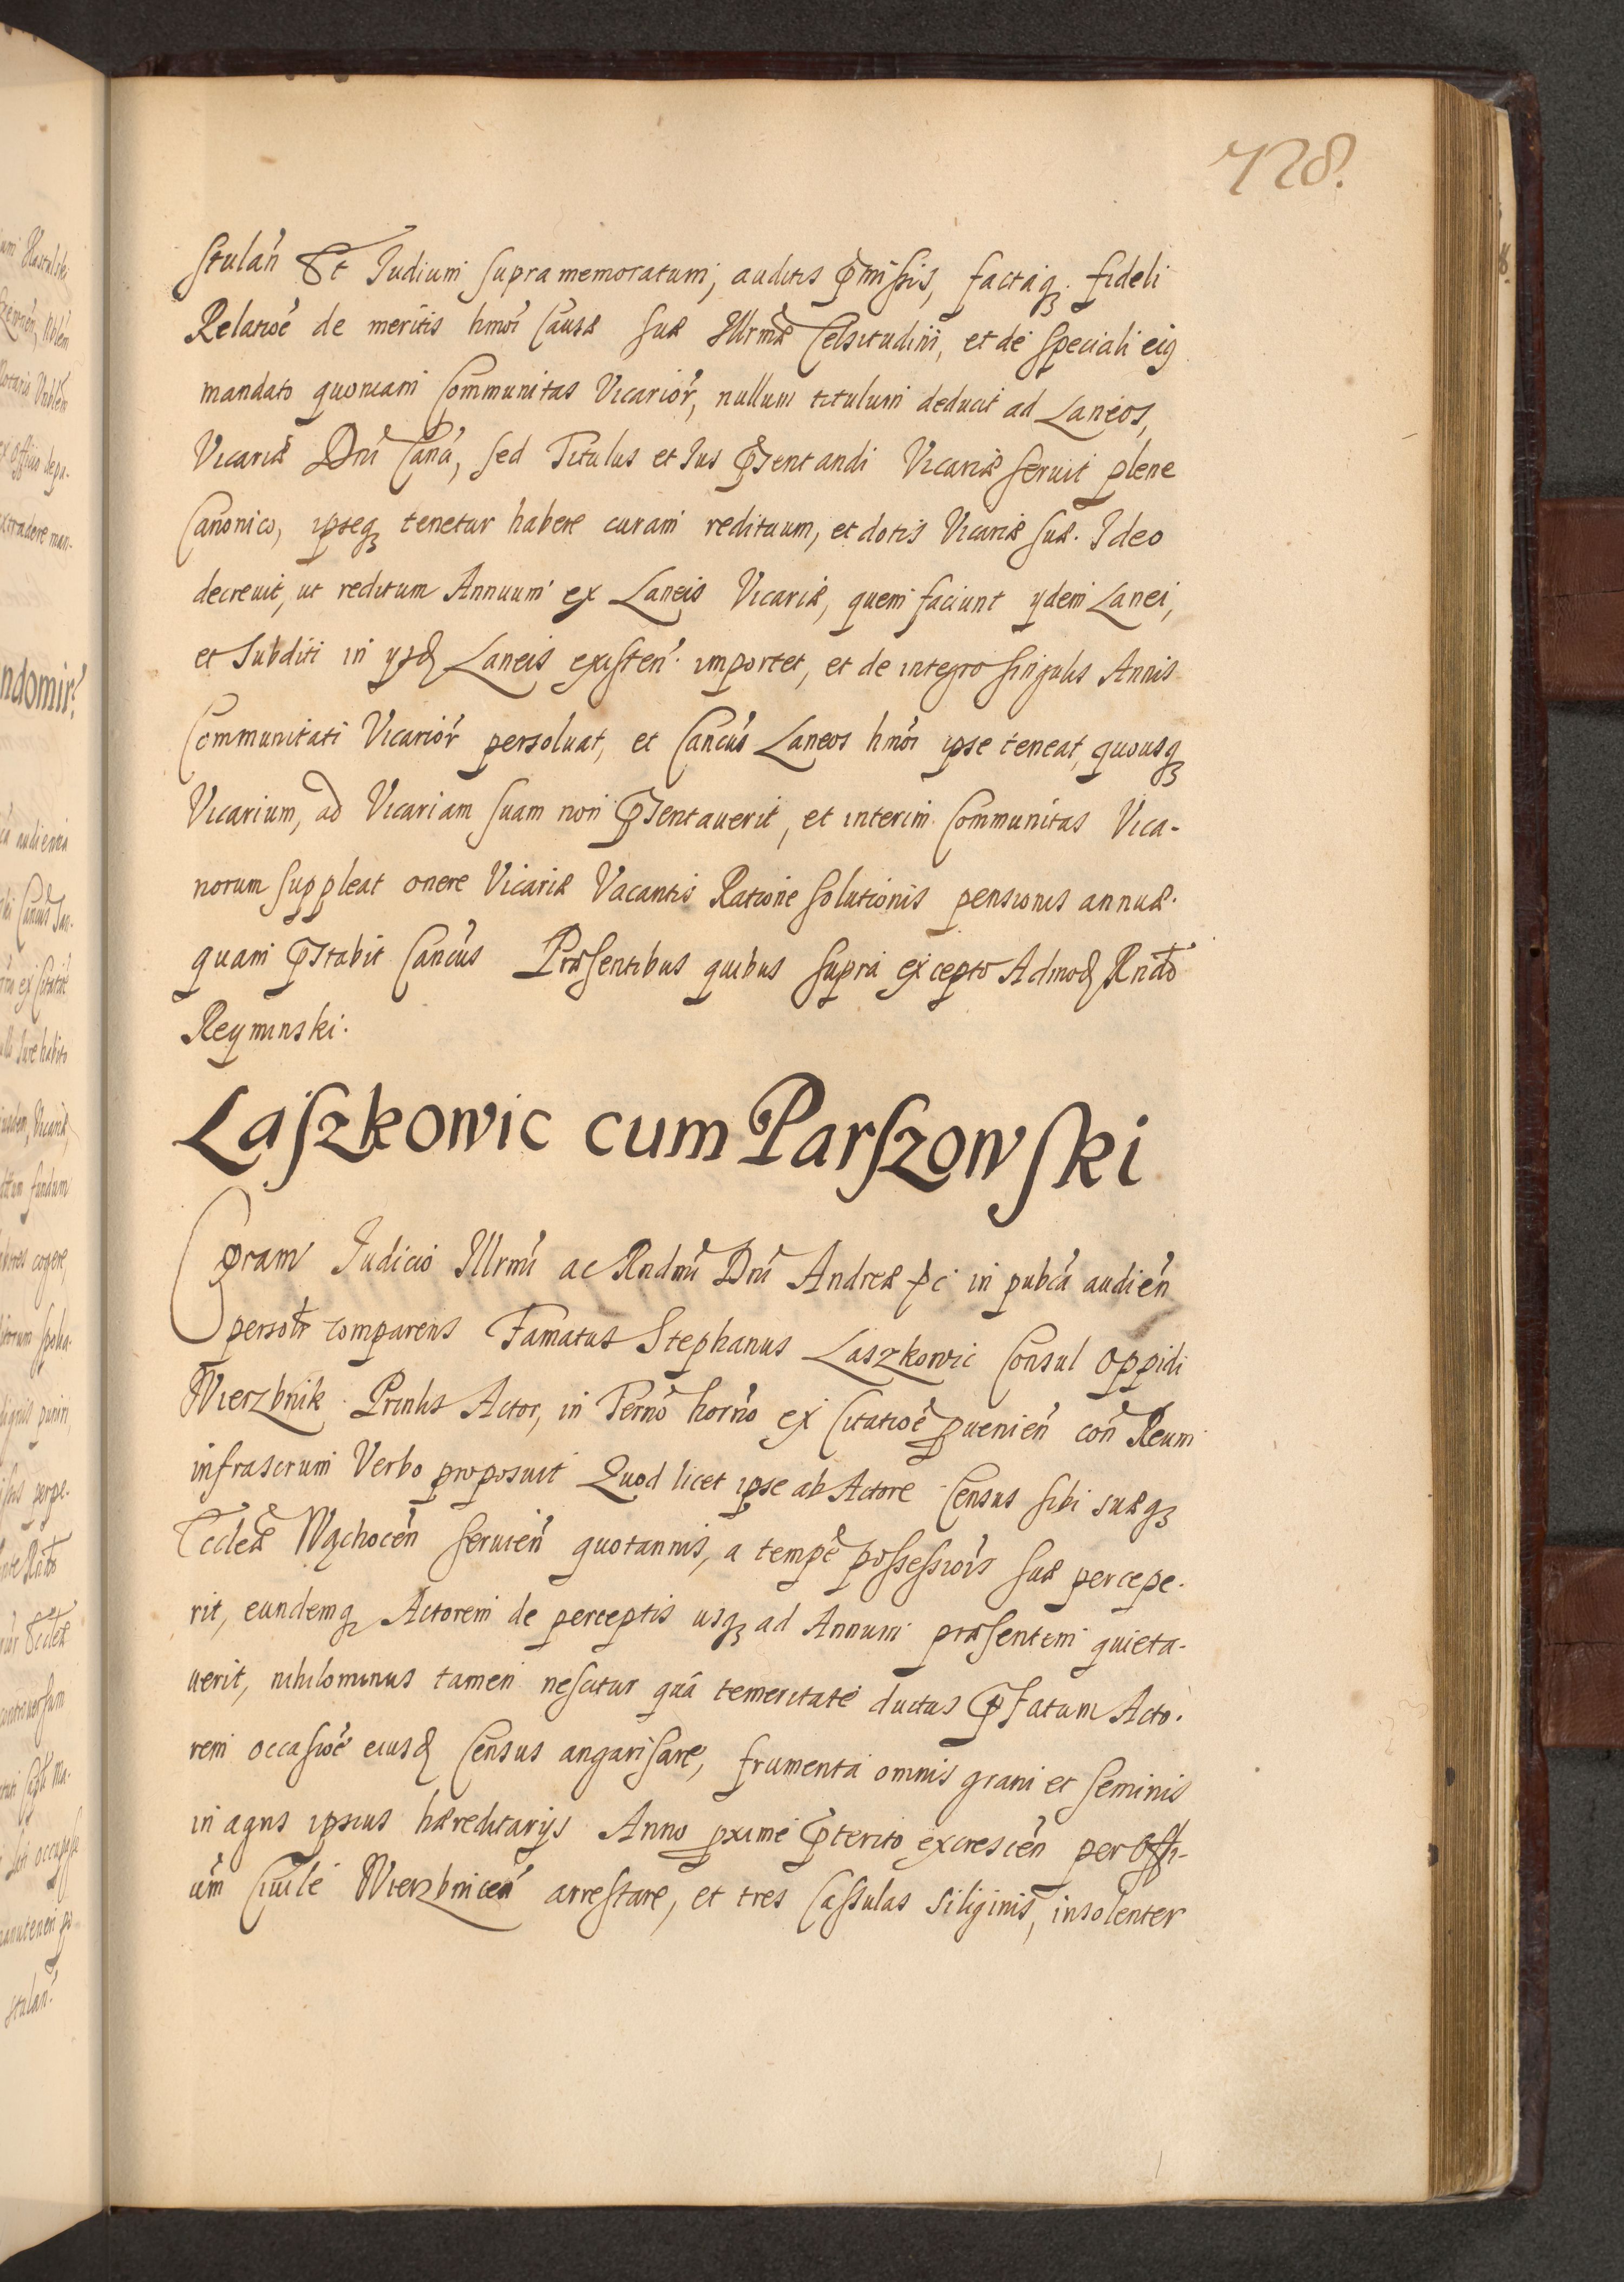 728.
stulań Et Iudium supra memoratum, auditis p̄missis, factaq̨. fideli
Relatioē de meritis hmōi Causæ suæ Illrmæ Celsitudini, et de speciali eiꝰ
mandato quoniam Communitas Vicariōr, nullum titulum deducit ad Laneos,
Vicariæ Dnī Canci, sed Titulus et Ius p̄sentandi Vicariæ seruit plene
Canonico, ipseq̨ tenetur habere curam redituum, et dotis Vicariæ suæ. Ideo
decreuit, ut reditum Annuum ex Laneis Vicariæ, quem faciunt ydem Lanei,
et Subditi in ysd̨ Laneis existeń. importet, et de integro singulis Annis
Communitati Vicariōr persoluat, et Cancūs Laneos hmōi ipse teneat, quousq̨
Vicarium, ad Vicariam suam non p̄sentauerit, et interim Communitas Vica-
riorum suppleat onere Vicariæ Vacantis Ratione solutionis pensionis annuæ.
quam p̄stabit Cancūs Præsentibus quibus supra excepto Admod̨ Rndo
Reyminski.
Laszkowic cum Parszowski
Coram Iudicio Illrmi ac Rndmi Dni Andreæ ꝑc in pubca audień
persolr comparens Famatus Stephanus Laszkowic Consul Oppidi
Wierzbnik Prinlis Actor, in Terno horno ex Citatioē p̱uenień coń Reum
infrascrum Verbo proposuit Quod licet ipse ab Actore Census sibi suæq̨
Eccleæ Wąchoceń seruień quotannis, a tempe possessiois suæ percepe.
rit, eundemq̨ Actorem de perceptis usq̨ ad Annum præsentem quieta-
uerit, nihilominus tamen nescitur quâ temeritate ductus p̄fatum Acto.
rem occasioē eiusd̨ Census angarisare, frumenta omnis grani et seminis
in agris ipsius hæreditarijs Anno pxime p̄terito excrescień per Offi-
um Ciuile Wierzbniceń arrestare, et tres Cassulas siliginis, insolenter